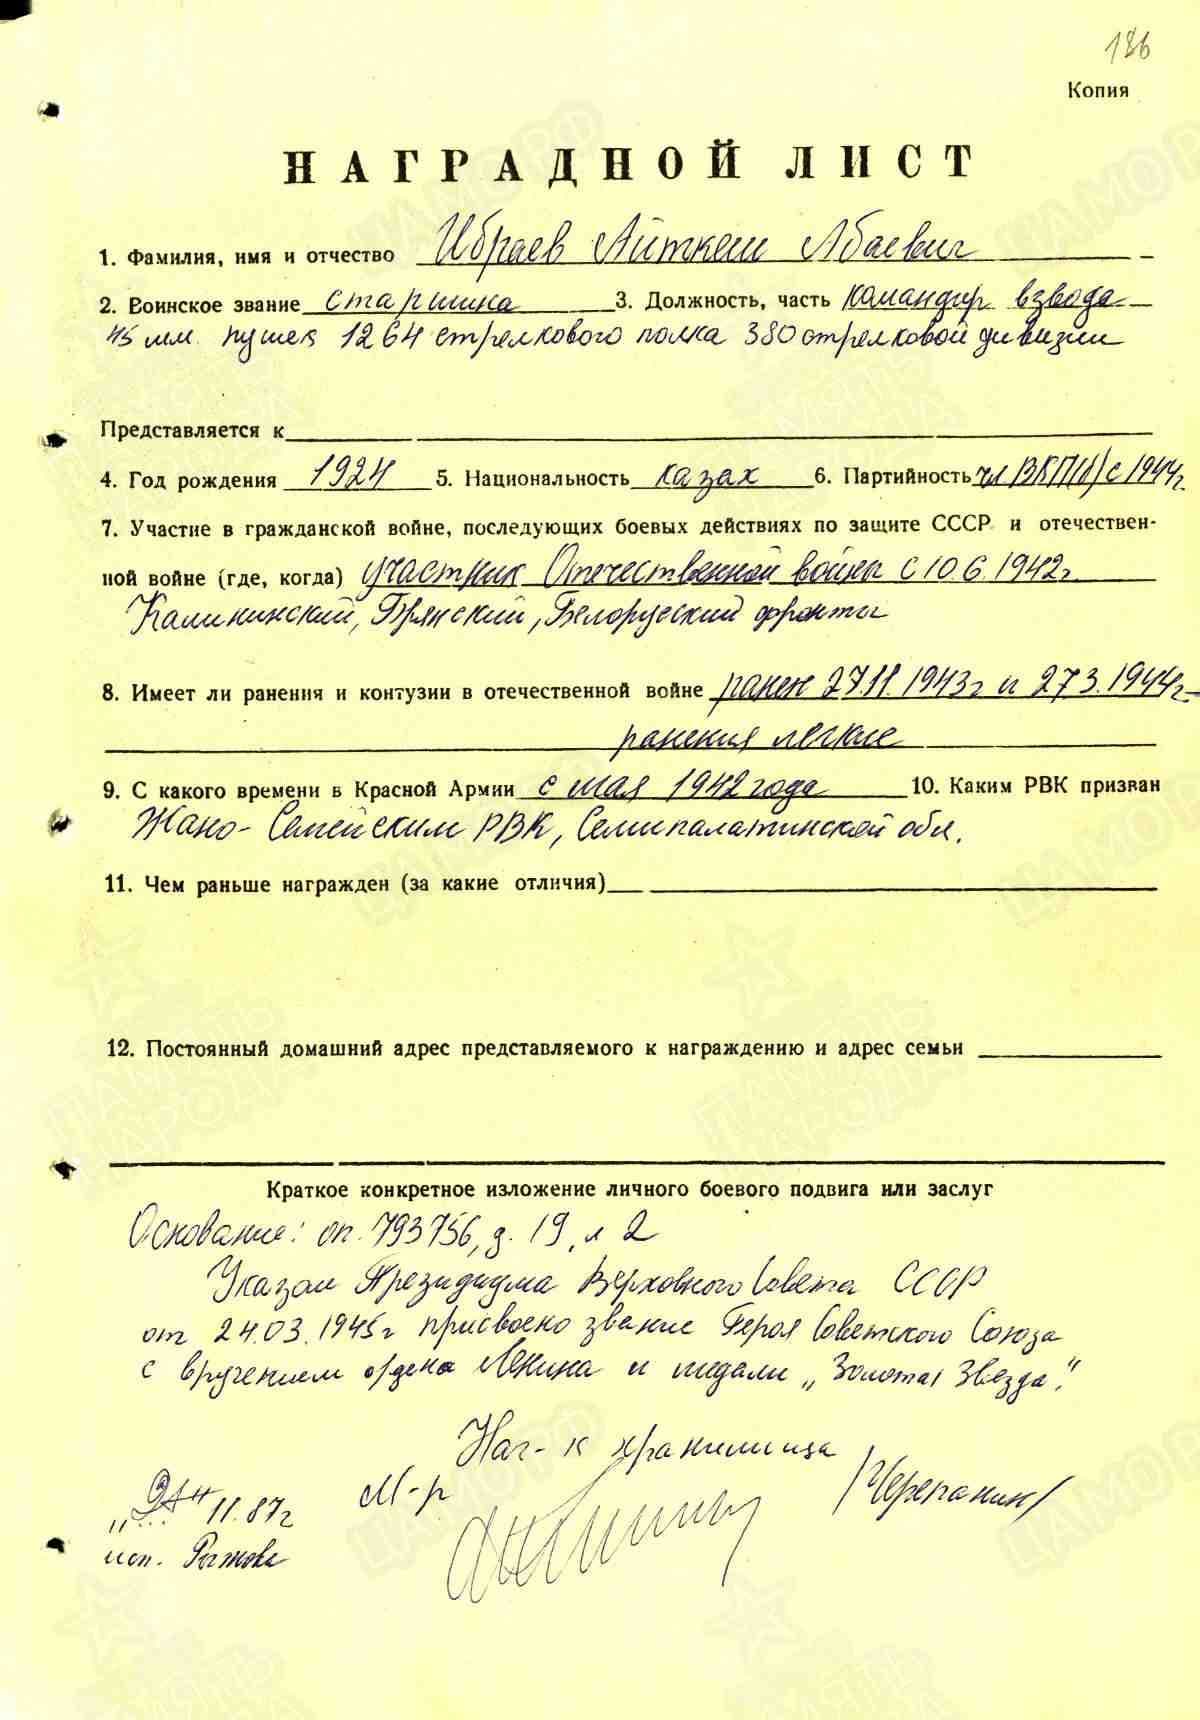 186
Копия
НАГРАДНОЙ ЛИСТ
1. Фамилия, имя и отчество Ибраев Айткеш Абаевич
2. Воинское звание старшина 3. Должность, часть командир взвода
45 мм. пушек 1264 стрелкового полка 380 стрелковой дивизии
Представляется к
4. Год рождения 1924 5. Национальность казах 6. Партийность чл ВКП(б) с 1944г.
7. Участие в гражданской войне, последующих боевых действиях по защите СССР и отечествен-
ной войне (где, когда) участник Отечественной войны с 10.6.1942г.
Калининский, Брянский, Белорусский фронты
8. Имеет ли ранения и контузии в отечественной войне ранен 27.11.1943г и 27.3.1944г.
ранения легкие
9. С какого времени в Красной Армии с мая 1942 года 10. Каким РВК призван
Жано-Семейским РВК, Семипалатинской обл.
11. Чем раньше награжден (за какие отличия)
12. Постоянный домашний адрес представляемого к награждению и адрес семьи
Краткое конкретное изложение личного боевого подвига или заслуг
Основание: оп. 793756, д. 19, л 2
Указом Президиума Верховного Совета СССР
от 24.03.1945г присвоено звание Героя Советского Союза
с вручением ордена Ленина и медали „Золотая Звезда".
Нач-к хранилища
М-р /Черепанин/
11.87г
исп. Рыжова
ПАМЯТЬ НАРОДА
ЦАМО.РФ